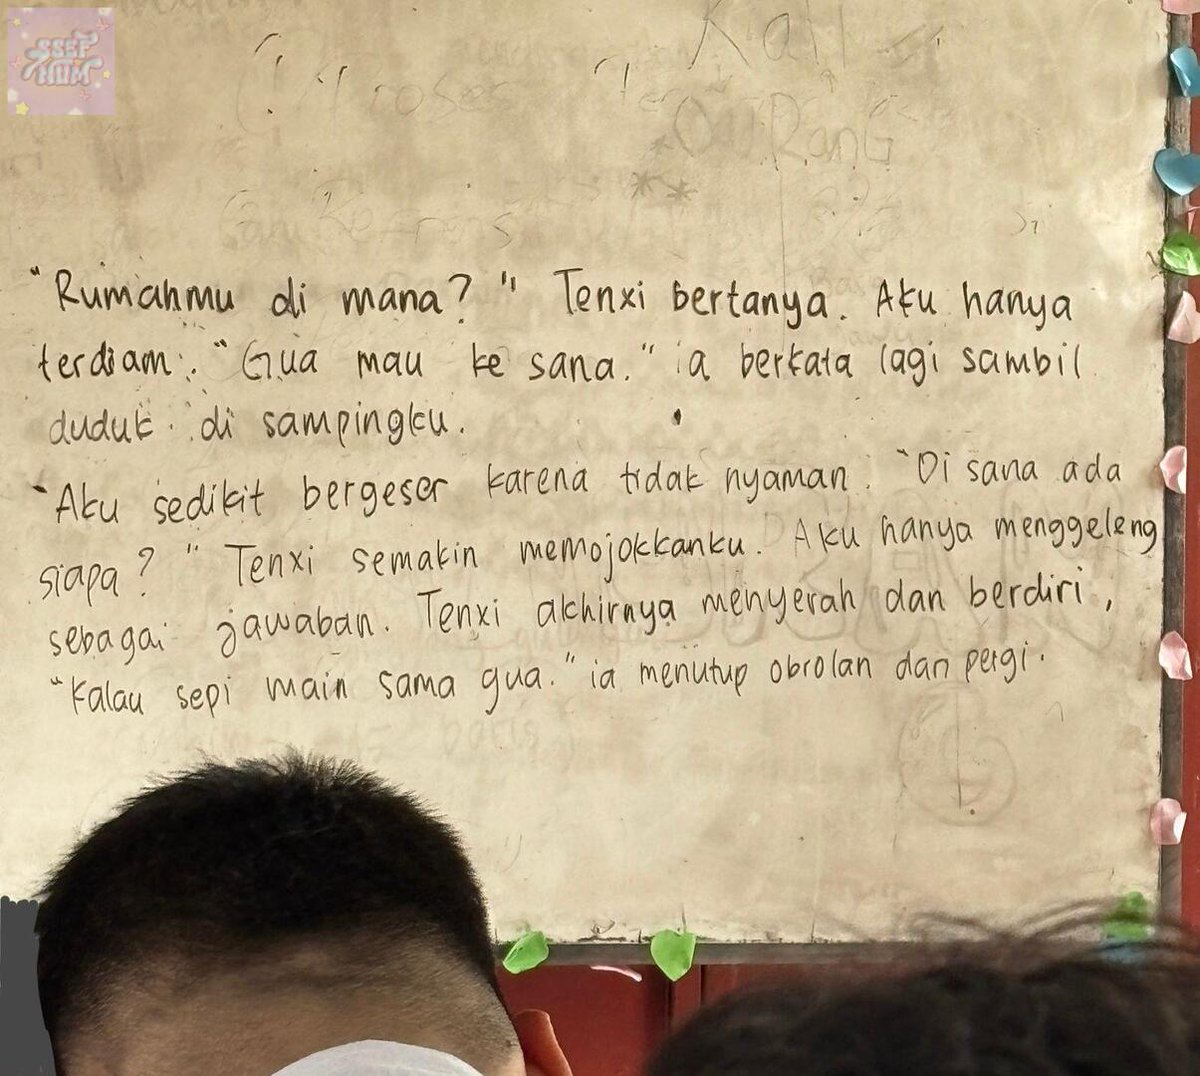 SSEF
NUM
Kali
OURANG
**
"Rumahmu di mana?" Tenxi bertanya. Aku hanya
terdiam. "Gua mau ke sana." ia berkata lagi sambil
duduk di sampingku.
"Aku sedikit bergeser karena tidak nyaman. "Di sana ada
siapa?" Tenxi semakin memojokkanku. Aku hanya menggeleng
sebagai jawaban. Tenxi akhirnya menyerah dan berdiri,
"Kalau sepi main sama gua." ia menutup obrolan dan pergi.